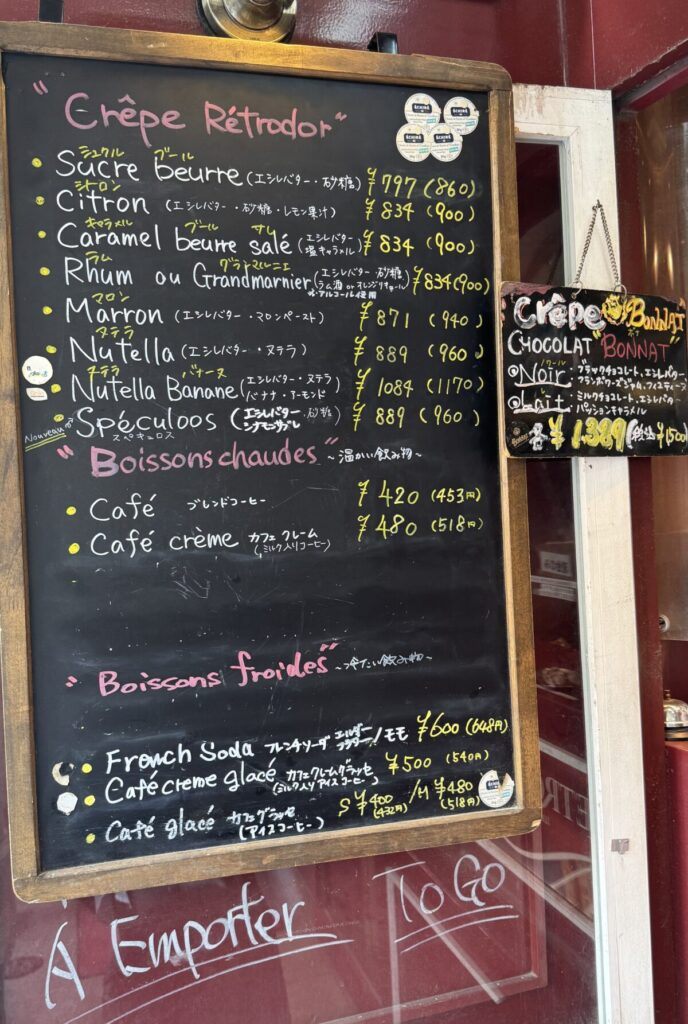 "Crêpe Rétrodor"
ÉCHIRÉ ÉCHIRÉ
ÉCHIRÉ ÉCHIRÉ
シュクル ブール
Sucre beurre (エシレバター・砂糖) ¥797 (860)
シトロン
Citron (エシレバター・砂糖・レモン果汁) ¥834 (900)
キャラメル ブール サレ
Caramel beurre salé (エシレバター・塩キャラメル) ¥834 (900)
ラム グラン マルニエ
Rhum ou Grandmarnier (エシレバター・砂糖 ラム酒 or オレンジリキュール) ¥834 (900)
※アルコール使用
マロン
Marron (エシレバター・マロンペースト) ¥871 (940)
ヌテラ
Nutella (エシレバター・ヌテラ) ¥889 (960)
ヌテラ バナーヌ
Nutella Banane (エシレバター・ヌテラ バナナ・アーモンド) ¥1084 (1170)
Nouveau
Spéculoos (エシレバター・砂糖 シナモンサブレ) ¥889 (960)
スペキュロス
"Boissons chaudes" ~温かい飲み物~
Café ブレンドコーヒー ¥420 (453円)
Café crème カフェ クレーム (ミルク入りコーヒー) ¥480 (518円)
"Boissons froides" ~冷たい飲み物~
French Soda フレンチソーダ エルダーフラワー/モモ ¥600 (648円)
Café creme glacé カフェクレームグラッセ (ミルク入りアイスコーヒー) ¥500 (540円)
Café glacé カフェグラッセ (アイスコーヒー) S ¥400 (432円) /M ¥480 (518円)
À Emporter To Go
Crêpe BONNAT
CHOCOLAT "BONNAT"
ノワール
Noir ブラックチョコレート、エシレバター
Lait ミルクチョコレート、エシレバター
パッションキャラメル
各 ¥1.389 (税込¥1500)